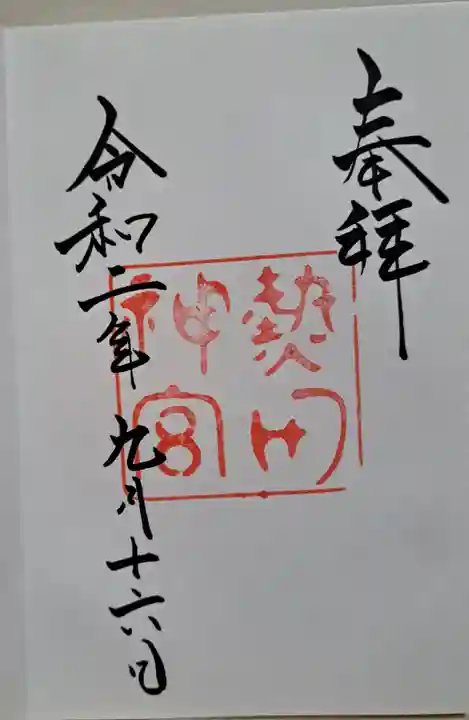 奉拝
熱田
神宮
令和二年九月十六日